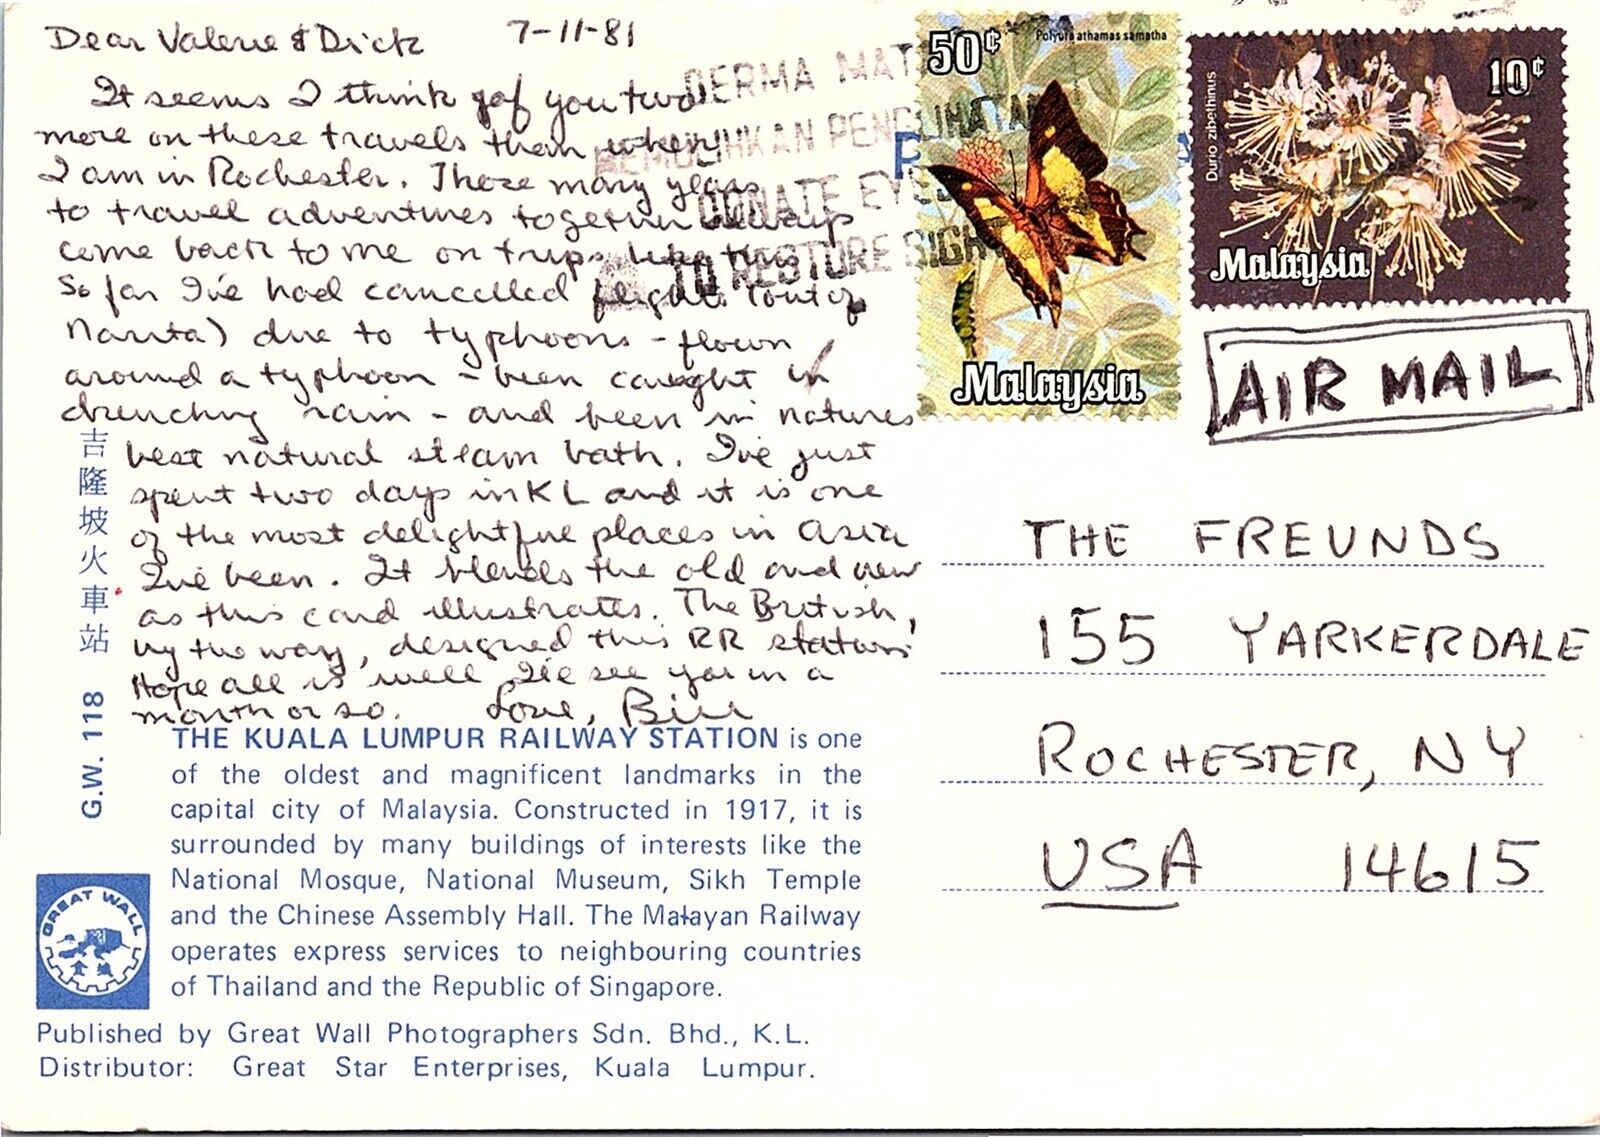 Dear Valerie & Dick 7-11-81
It seems I think of you two
more on these travels than when
I am in Rochester. Those many years
to travel adventures together always
come back to me on trips like this
So far I've had cancelled flights (out of
Narita) due to typhoons - flown
around a typhoon - been caught in
drenching rain - and been in natures
best natural steam bath. I've just
spent two days in KL and it is one
of the most delightful places in Asia
I've been. It blends the old and new
as this card illustrates. The British,
by the way, designed this RR station.
Hope all is well I'll see you in a
month or so. Love, Bill
DERMA MAT
MEMULIHKAN PENGLIHATAN
DONATE EYES
TO RESTORE SIGHT
50¢
Polyura athamas samatha
Malaysia
10¢
Durio zibethinus
Malaysia
AIR MAIL
THE FREUNDS
155 YARKERDALE
ROCHESTER, NY
USA 14615
吉隆坡火車站
G.W. 118
THE KUALA LUMPUR RAILWAY STATION is one
of the oldest and magnificent landmarks in the
capital city of Malaysia. Constructed in 1917, it is
surrounded by many buildings of interests like the
National Mosque, National Museum, Sikh Temple
and the Chinese Assembly Hall. The Malayan Railway
operates express services to neighbouring countries
of Thailand and the Republic of Singapore.
GREAT WALL
長城
Published by Great Wall Photographers Sdn. Bhd., K.L.
Distributor: Great Star Enterprises, Kuala Lumpur.